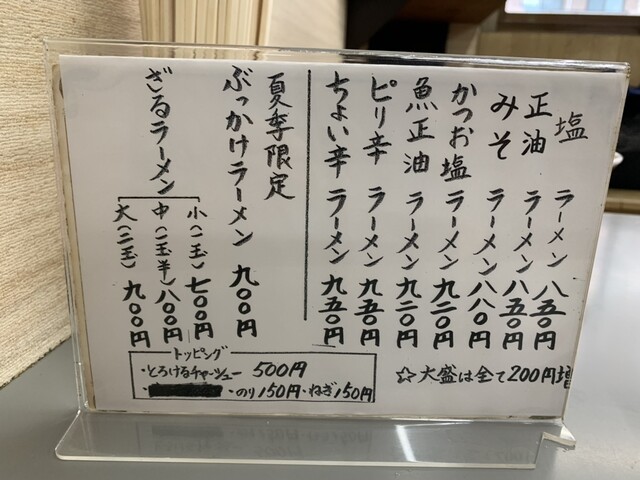 塩ラーメン 八五〇円
正油ラーメン 八五〇円
みそラーメン 八八〇円
かつお塩ラーメン 九二〇円
魚正油ラーメン 九二〇円
ピリ辛ラーメン 九五〇円
ちょい辛ラーメン 九五〇円
夏季限定
ぶっかけラーメン 九〇〇円
ざるラーメン
小(一玉)七〇〇円
中(一玉半)八〇〇円
大(二玉)九〇〇円
トッピング
・とろけるチャーシュー 500円
・のり150円・ねぎ150円
☆大盛は全て200円増